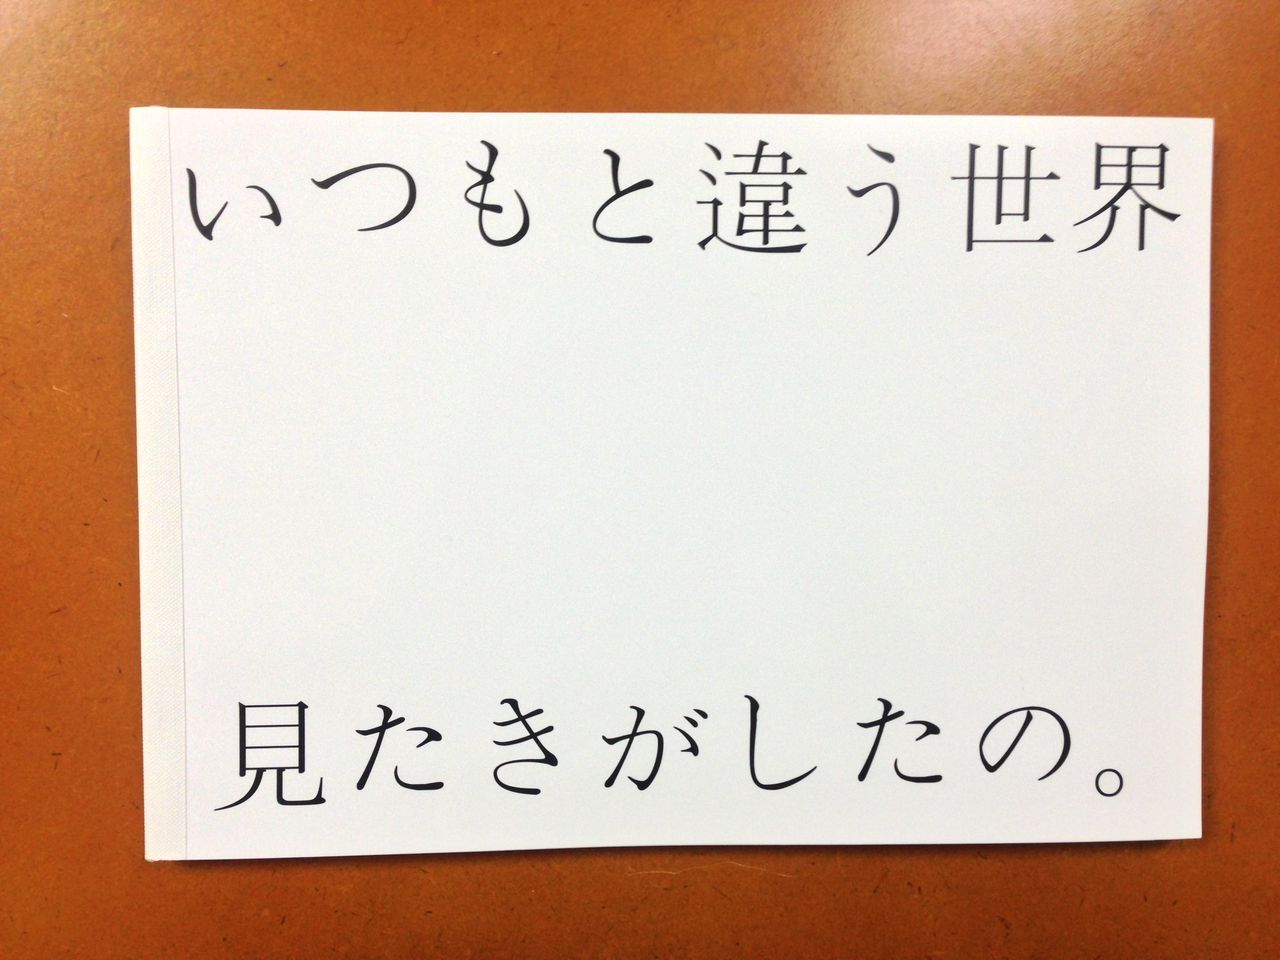 いつもと違う世界
見たきがしたの。